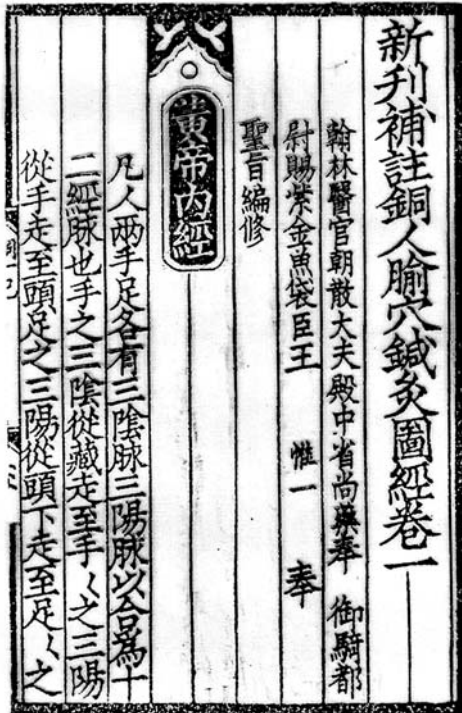 新刋補註銅人腧穴鍼灸圖經卷一
翰林醫官朝散大夫殿中省尚藥奉 御騎都
尉賜紫金魚袋臣王 惟一 奉
聖旨編修
黃帝內經
凡人兩手足各有三陰脉三陽脉以合爲十
二經脉也手之三陰從藏走至手〻之三陽
從手走至頭足之三陽從頭下走至足〻之